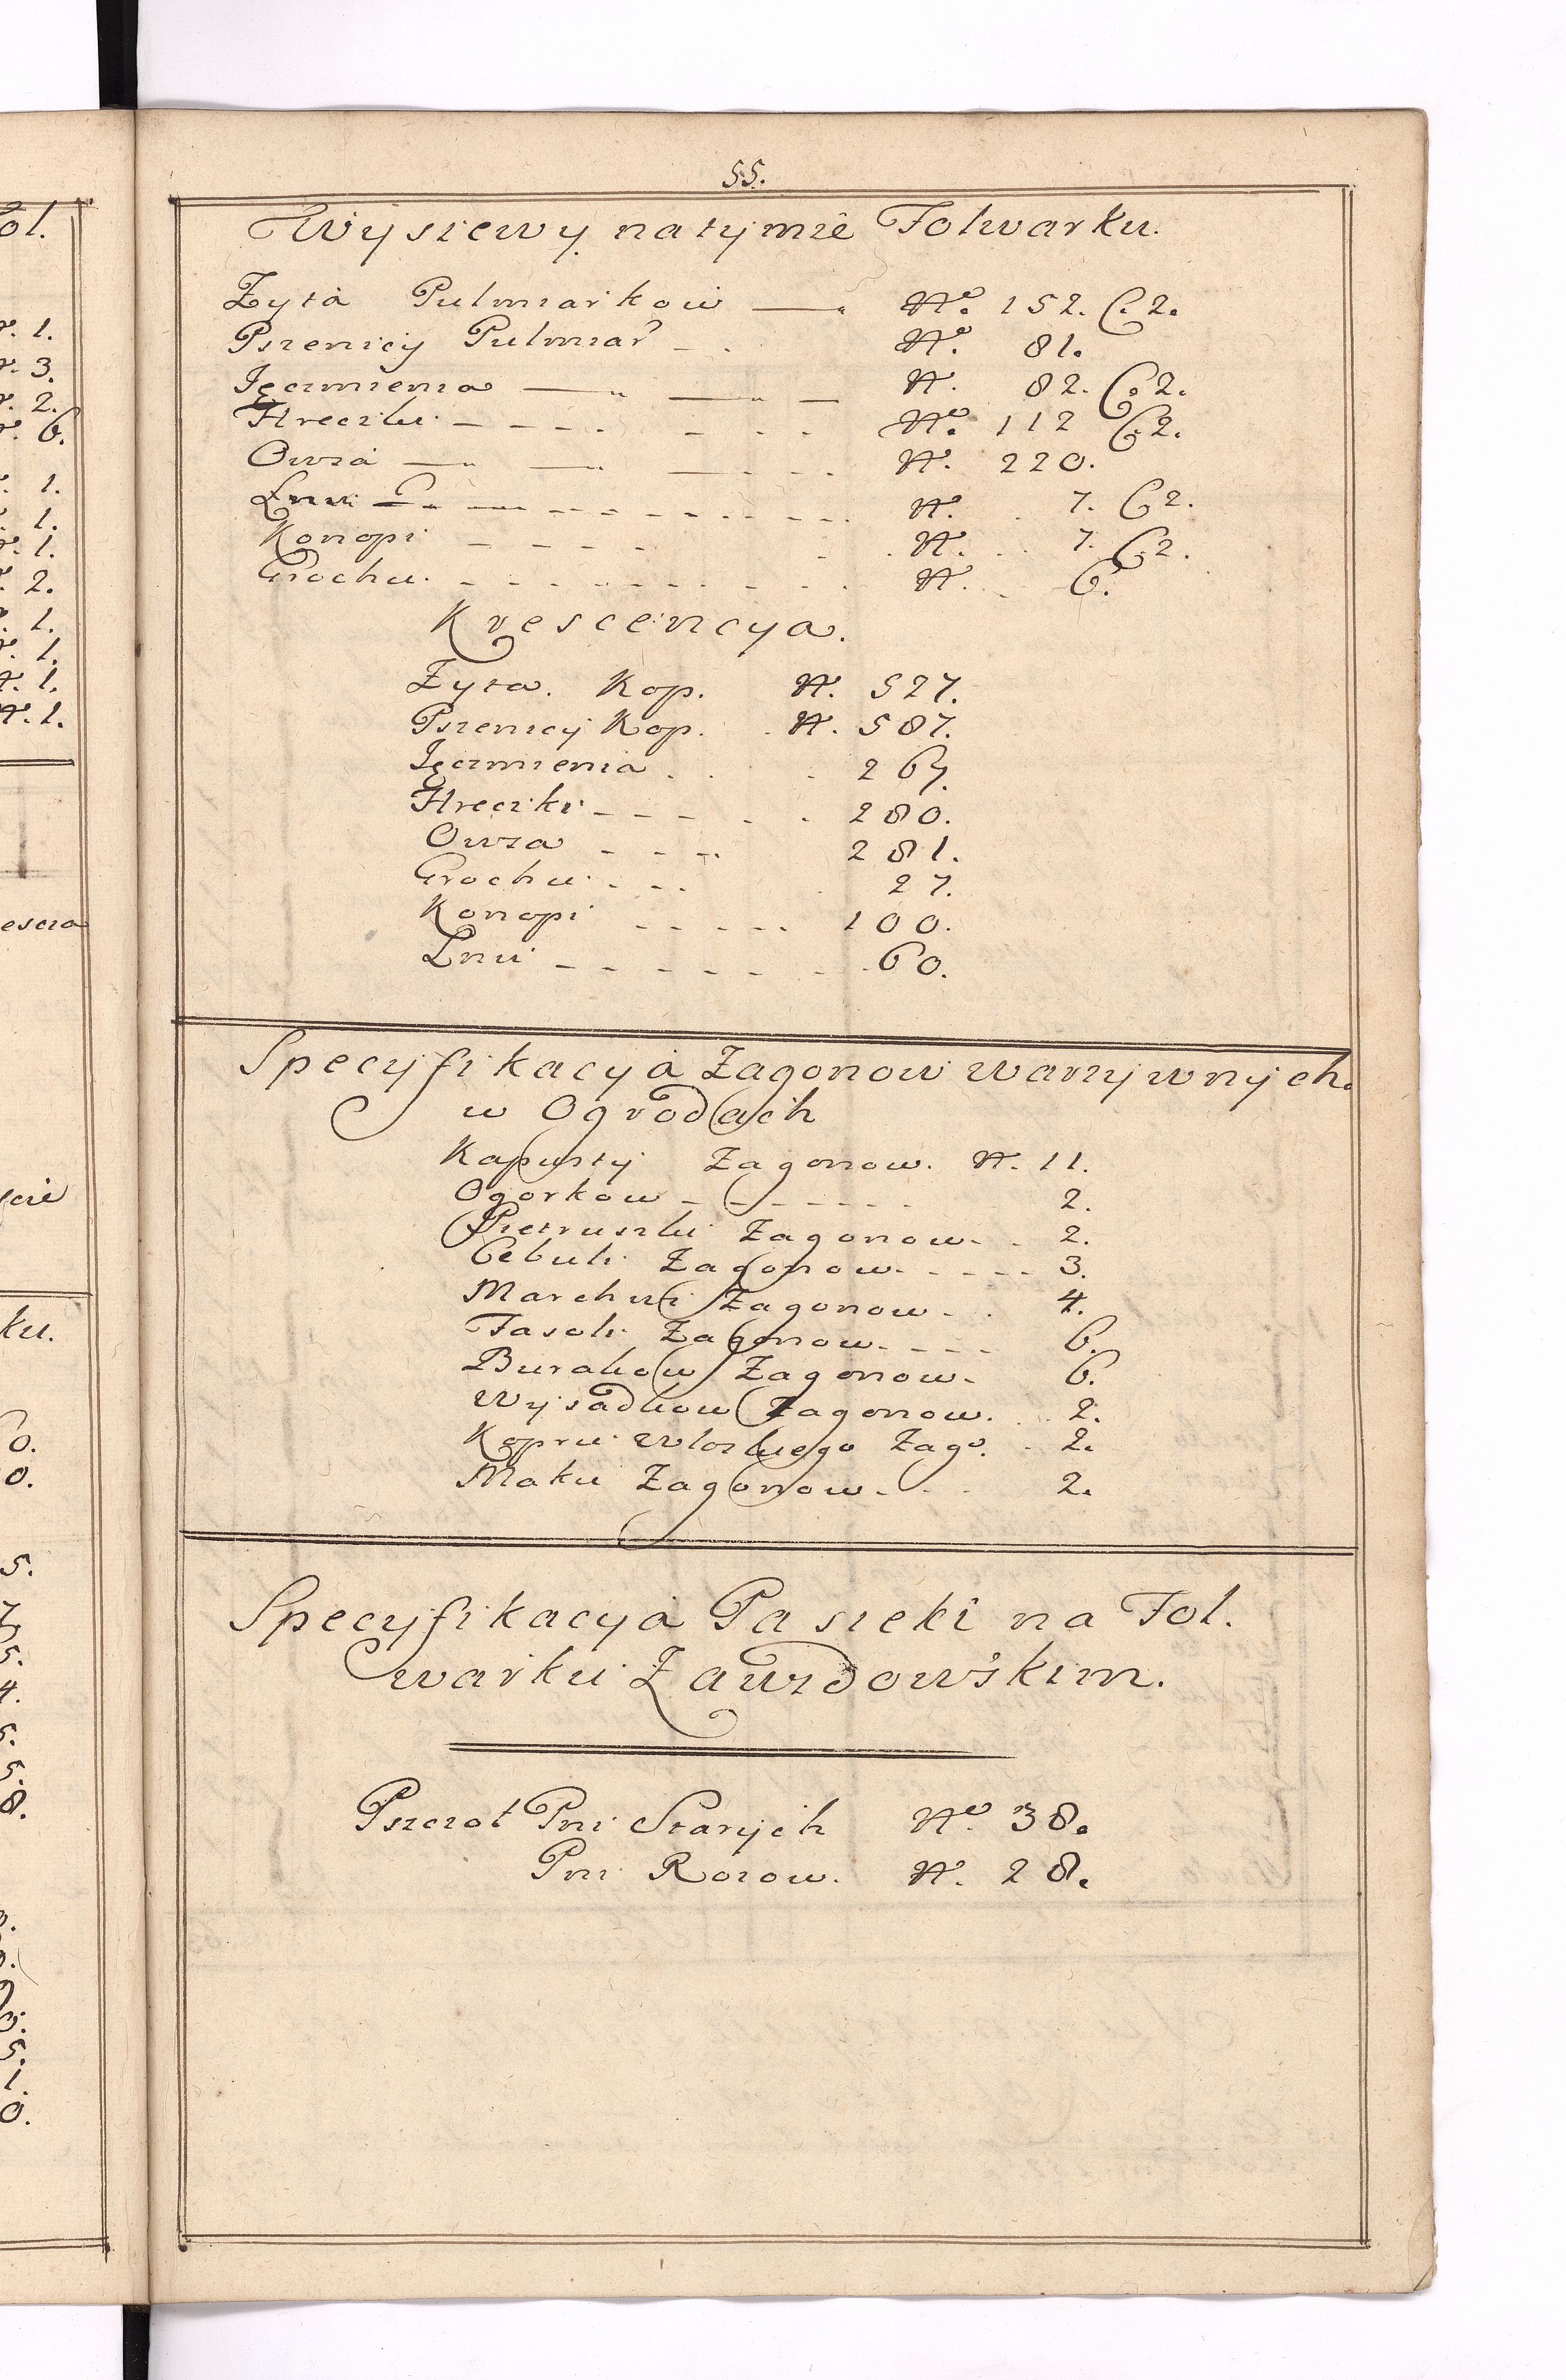 55.
Wysiewy na tymże Folwarku.
Zyta Pulmiarkow — No. 152. C. 2.
Pszenicy Pulmiar No. 81.
Jęczmienia — N. 82. C. 2.
Hreczki - - - - No. 112 C. 2.
Owsa — N. 220.
Lnu - - - - N. 7. C 2.
Konopi - - - - N. 7. C. 2.
Grochu. - - - - N. 6.
Krescencya.
Zyta. Kop. N. 527.
Pszenicy Kop. N. 587.
Jęczmienia. 267.
Hreczki - - - 280.
Owsa - - - 281.
Grochu - - - 27.
Konopi - - - - - 100.
Lnu - - - - - 60.
Specyfikacya Zagonow warzywnych.
w Ogrodach
Kapusty Zagonow. N. 11.
Ogorkow - - - - - 2.
Pietruszki Zagonow - - 2.
Cebuli Zagonow - - - - - 3.
Marchwi Zagonow - . 4.
Fasoli Zagonow - - - - 6.
Burakow Zagonow - 6.
Wysadkow Zagonow. . . 2.
Kopru Włoskiego Zago. - 2.
Maku Zagonow - . . 2.
Specyfikacya Pasieki na Fol.
warku Zawzdowskim.
Pszczoł Pni Starych No. 38.
Pni Roiow. N. 28.
ol.
1.
3.
2.
6.
1.
1.
1.
2.
1.
1.
1.
N. 1.
ku.
0.
0.
5.
5.
4.
5.
5.
8.
5.
1.
0.